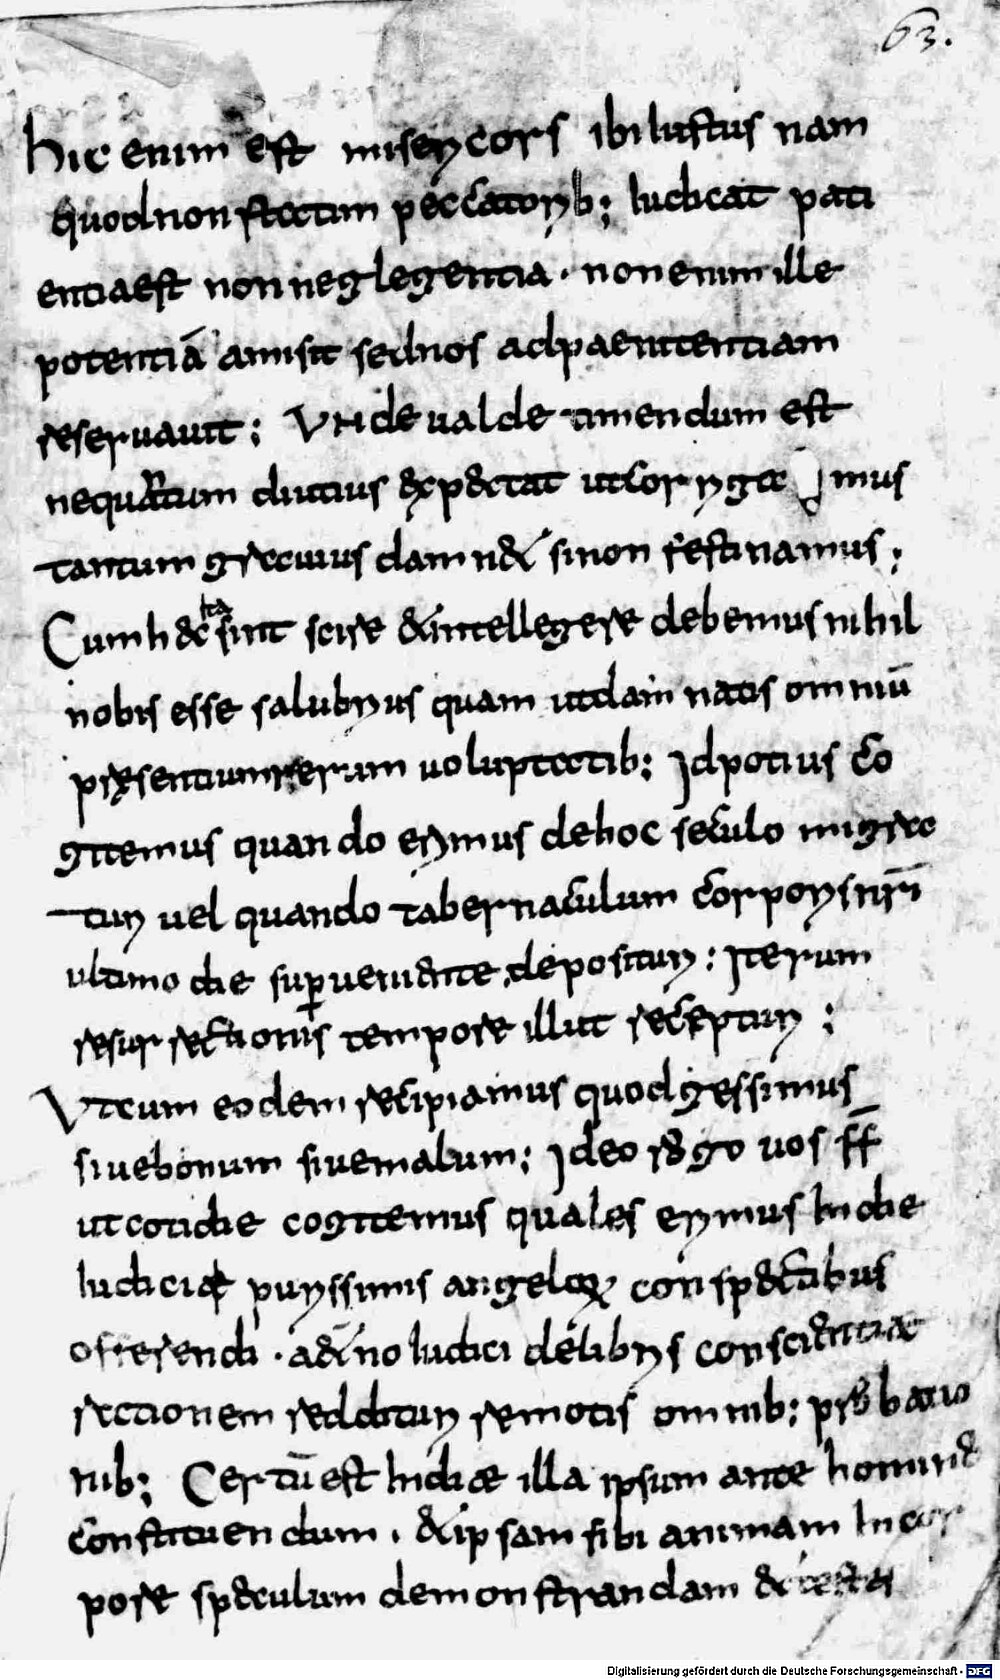 63.
hic enim est misericors ibi iustus nam
quod non statim peccatorib; iudicat pati
entia est non neglegentia · non enim ille
potentiā amisit sed nos ad paenitentiam
reservavit : Unde valde timendum est
nequātum diutius expectat ut corriga mus
tantum gravius damnet si non festinamus ;
Cum haec ita sint scire et intellegere debemus nihil
nobis esse salubrius quam ut damnatis omniū
pręsentium rerum voluptatib; Id potius co
gitemus quando erimus de hoc seculo migra
turi vel quando tabernaculum corporis nr̄i
ultimo die suꝑveniente deposituri : Iterum
resurrectionis tempore illut recepturi :
Ut cum eodem recipiamus quod gessimus
sive bonum sive malum ; Ideo rogo vos ff̄
ut cotidie cogitemus quales erimus in die
iudicii puryssimis angeloꝝ conspectibus
offerendi · aeterno iudici de libris conscientiae
rationem reddituri remotis omnib; probatio
nib; Certū est in diae illa ipsum ante homine
constituendum . et ipsam sibi animam in cor
pore speculum demonstrandam et